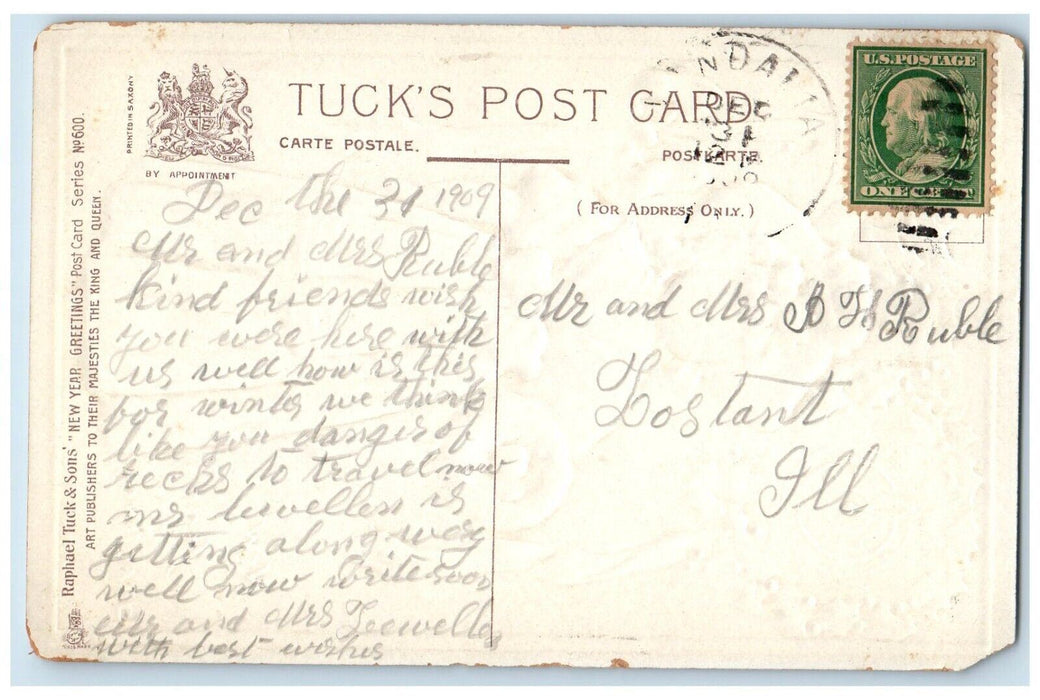 TUCK'S POST CARD
CARTE POSTALE.
POSTKARTE.
BY APPOINTMENT
PRINTED IN SAXONY
( FOR ADDRESS ONLY. )
Raphael Tuck & Sons' "NEW YEAR GREETINGS" Post Card Series Nº 600.
ART PUBLISHERS TO THEIR MAJESTIES THE KING AND QUEEN.
U.S. POSTAGE
ONE CENT
NDALIA
DEC
31
Dec the 31 1909
Mr and Mrs Ruble
kind friends wish
you were here with
us well how is this
for winter we think
like you danger of
recks to travel now
mr Lewellen is
gitting along very
well now write soon
Mr and Mrs Leewellen
with best wishes
Mr and Mrs B H Ruble
Lostant
Ill